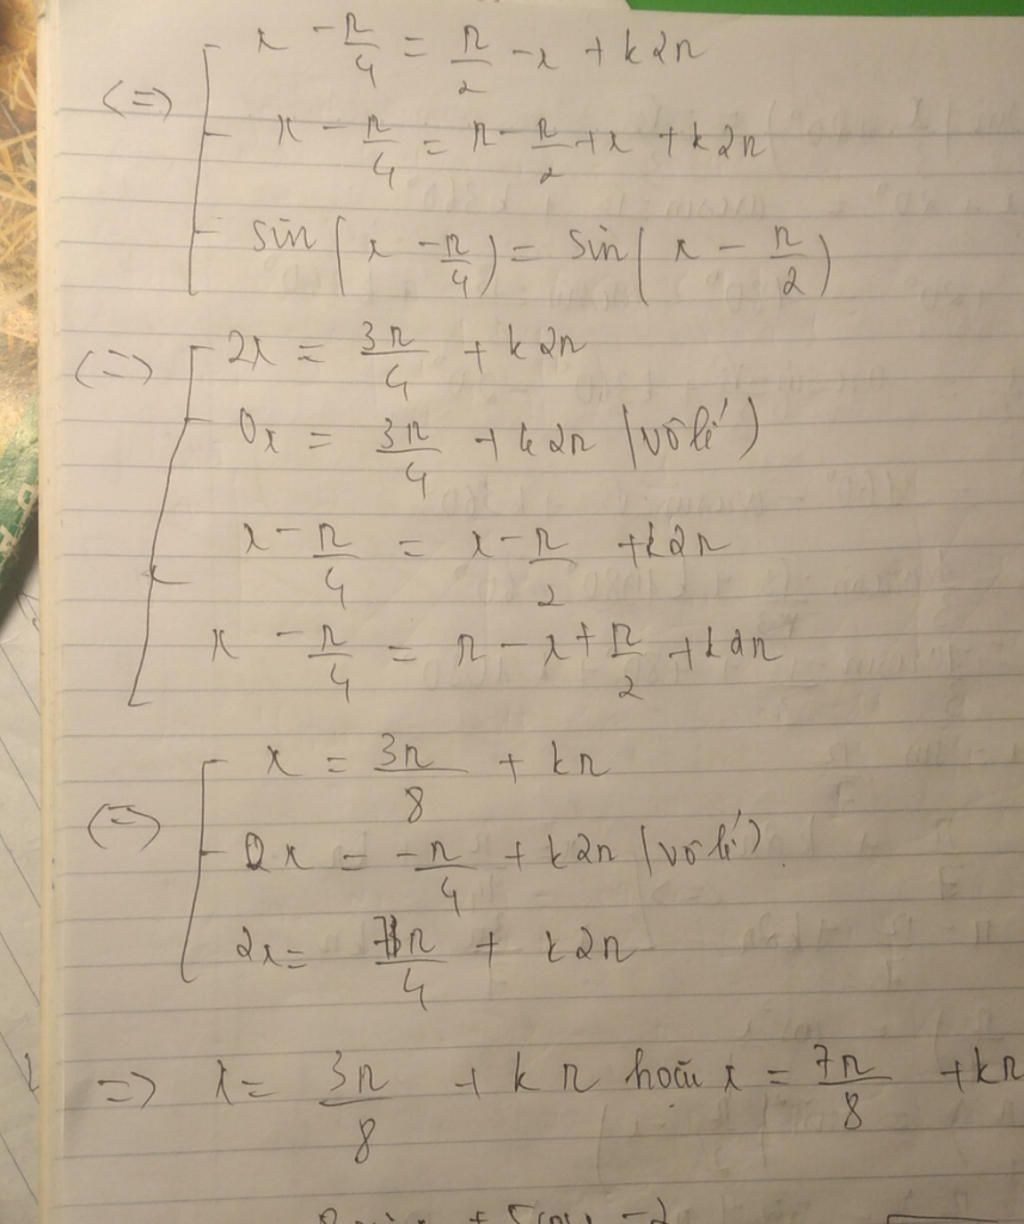 (=) x - π/4 = π/2 - x + k2π
x - π/4 = π - π/2 + x + k2π
sin(x - π/4) = sin(x - π/2)
(=) 2x = 3π/4 + k2π
0x = 3π/4 + k2π (vô lí)
x - π/4 = x - π/2 + k2π
x - π/4 = π - x + π/2 + k2π
(=) x = 3π/8 + kπ
0x = -π/4 + k2π (vô lí).
2x = 7π/4 + k2π
=> x = 3π/8 + kπ hoặc x = 7π/8 + kπ